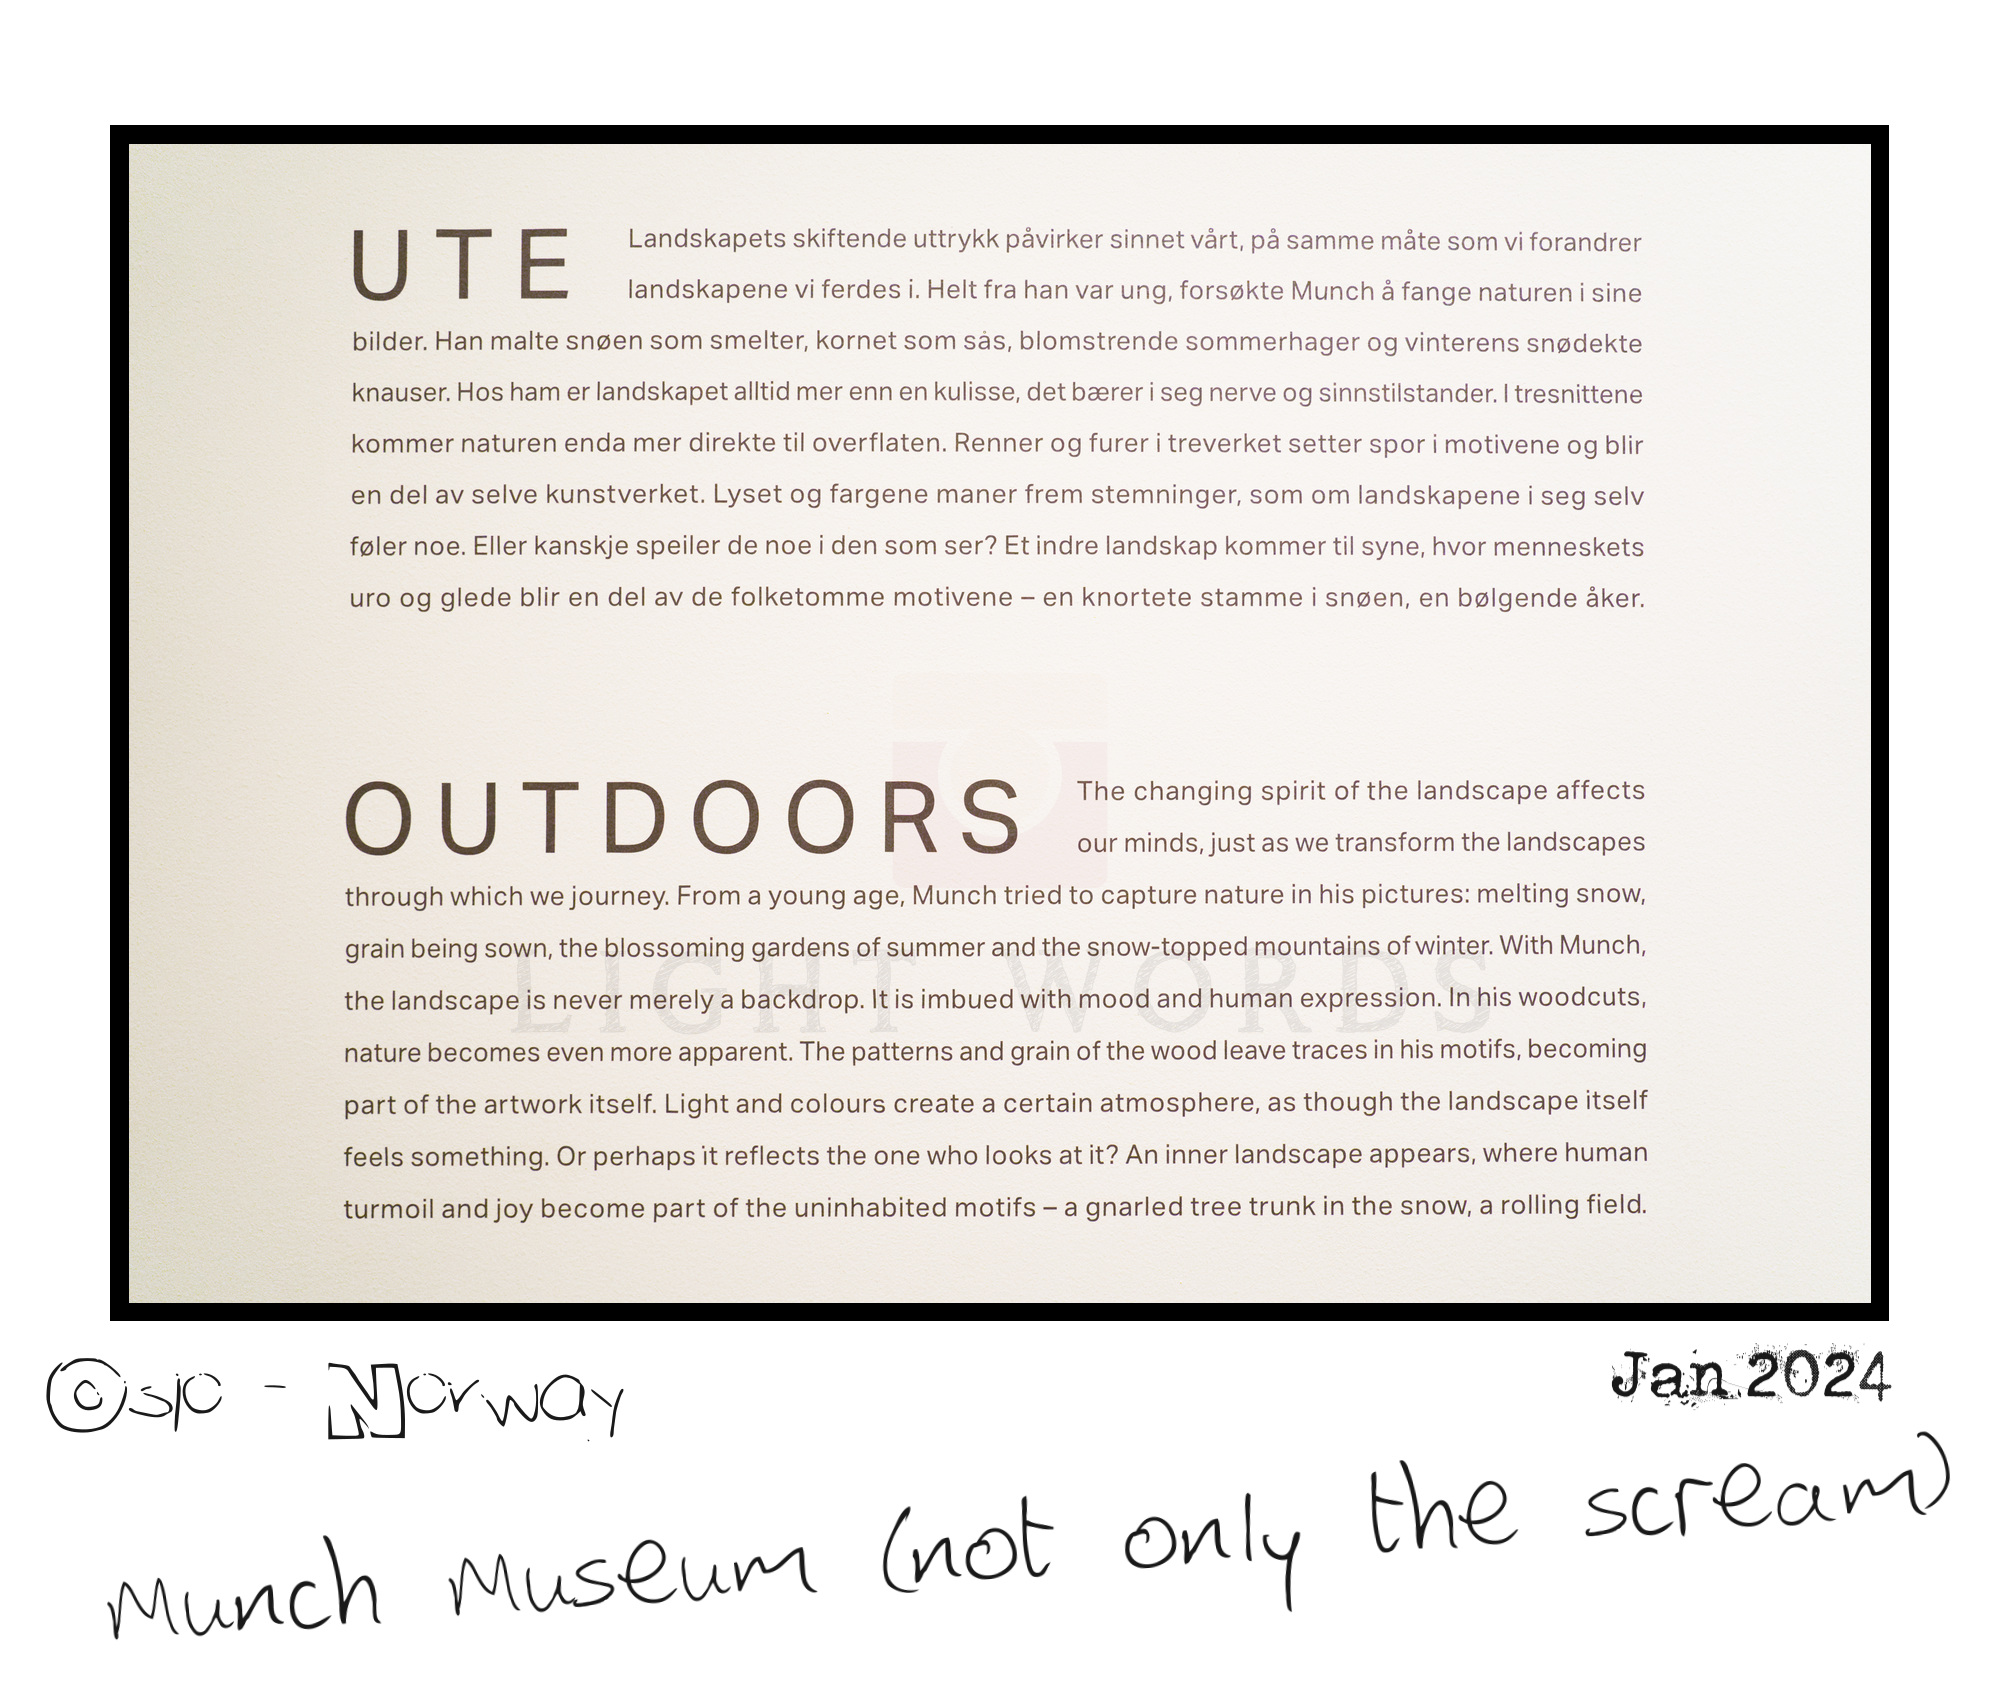 UTE
Landskapets skiftende uttrykk påvirker sinnet vårt, på samme måte som vi forandrer
landskapene vi ferdes i. Helt fra han var ung, forsøkte Munch å fange naturen i sine
bilder. Han malte snøen som smelter, kornet som sås, blomstrende sommerhager og vinterens snødekte
knauser. Hos ham er landskapet alltid mer enn en kulisse, det bærer i seg nerve og sinnstilstander. I tresnittene
kommer naturen enda mer direkte til overflaten. Renner og furer i treverket setter spor i motivene og blir
en del av selve kunstverket. Lyset og fargene maner frem stemninger, som om landskapene i seg selv
føler noe. Eller kanskje speiler de noe i den som ser? Et indre landskap kommer til syne, hvor menneskets
uro og glede blir en del av de folketomme motivene – en knortete stamme i snøen, en bølgende åker.
OUTDOORS
The changing spirit of the landscape affects
our minds, just as we transform the landscapes
through which we journey. From a young age, Munch tried to capture nature in his pictures: melting snow,
grain being sown, the blossoming gardens of summer and the snow-topped mountains of winter. With Munch,
the landscape is never merely a backdrop. It is imbued with mood and human expression. In his woodcuts,
nature becomes even more apparent. The patterns and grain of the wood leave traces in his motifs, becoming
part of the artwork itself. Light and colours create a certain atmosphere, as though the landscape itself
feels something. Or perhaps it reflects the one who looks at it? An inner landscape appears, where human
turmoil and joy become part of the uninhabited motifs – a gnarled tree trunk in the snow, a rolling field.
LIGHT WORDS
Oslo - Norway
Jan 2024
Munch Museum (not only the scream)